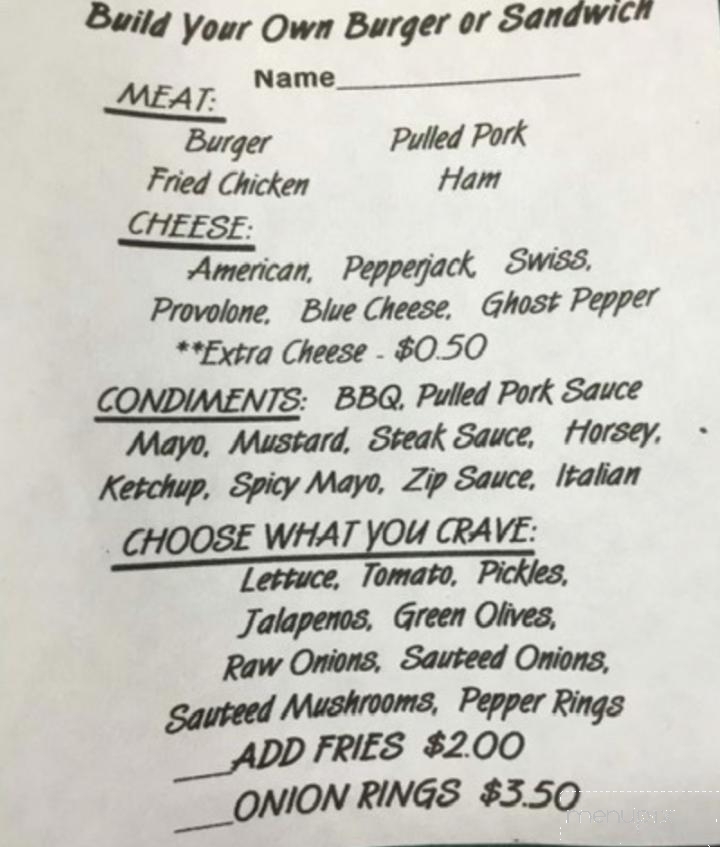 Build Your Own Burger or Sandwich
Name
MEAT:
Burger Pulled Pork
Fried Chicken Ham
CHEESE:
American, Pepperjack, Swiss,
Provolone, Blue Cheese, Ghost Pepper
**Extra Cheese - $0.50
CONDIMENTS: BBQ, Pulled Pork Sauce
Mayo, Mustard, Steak Sauce, Horsey,
Ketchup, Spicy Mayo, Zip Sauce, Italian
CHOOSE WHAT YOU CRAVE:
Lettuce, Tomato, Pickles,
Jalapenos, Green Olives,
Raw Onions, Sauteed Onions,
Sauteed Mushrooms, Pepper Rings
___ADD FRIES $2.00
___ONION RINGS $3.50
menupix